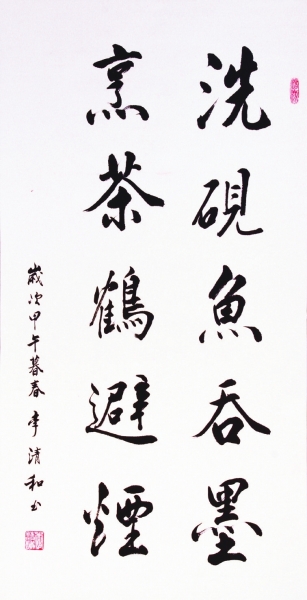 洗硯魚吞墨
烹茶鶴避煙
歲次甲午暮春李清和书